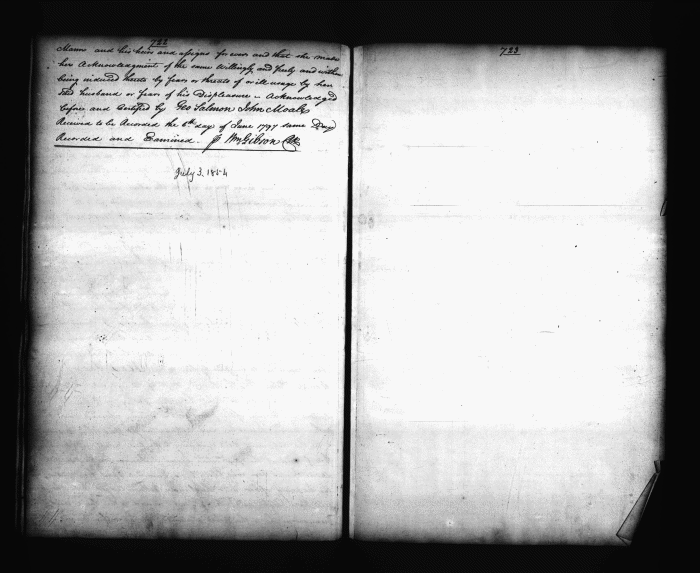 722
Mann and his heirs and assigns for ever and that she made
her Acknowledgment of the same willingly and freely and without
being induced thereto by fears or threats of or ill usage by her
said husband or fear of his Displeasure - Acknowledged
before and Certified by Geo Salmon John Moale
Received to be Recorded the 6th day of June 1797 same Day
Recorded and Examined. P Wm Gibson Clk
July 3. 1854
723